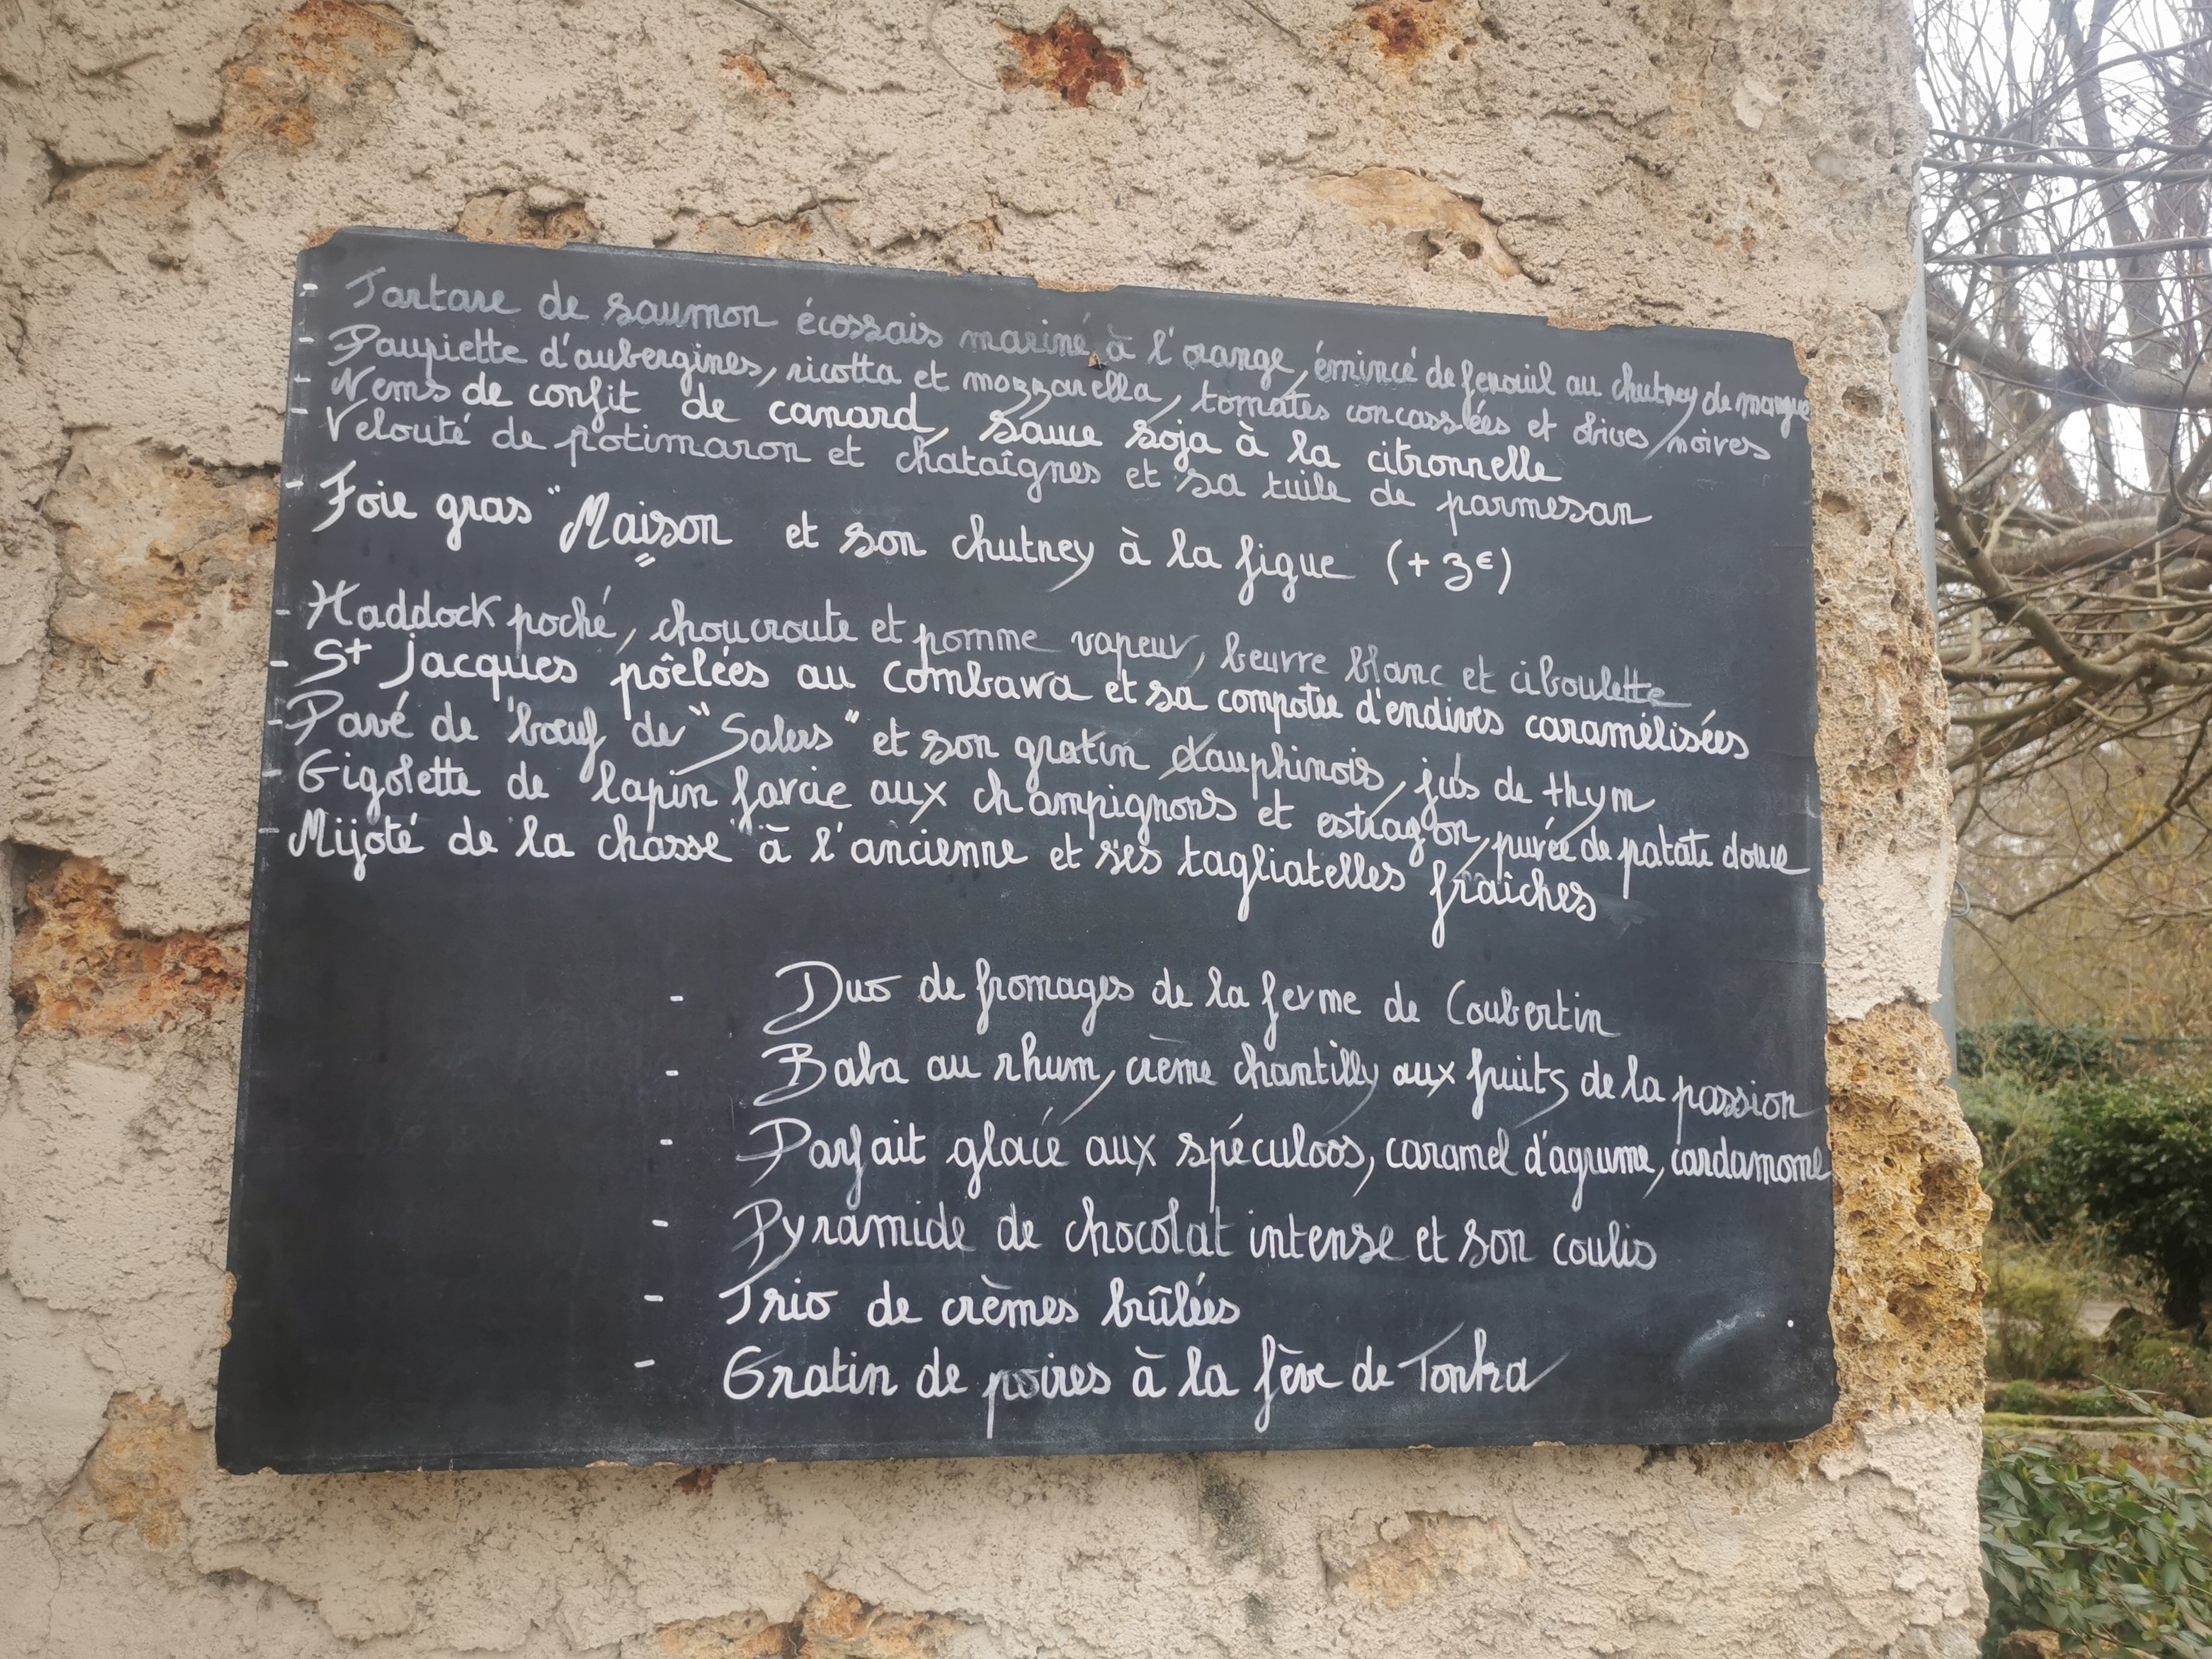 - Tartare de saumon écossais mariné à l'orange, émincé de fenouil au chutney de mangue
- Paupiette d'aubergines, ricotta et mozzarella, tomates concassées et olives noires
- Nems de confit de canard, sauce soja à la citronnelle
- Velouté de potimaron et chataîgnes et sa tuile de parmesan
- Foie gras "Maison et son chutney à la figue (+3€)
- Haddock poché, choucroute et pomme vapeur, beurre blanc et ciboulette
- St Jacques pôêlées au combawa et sa compotée d'endives caramélisées
- Pavé de bœuf de "Salers" et son gratin dauphinois, jus de thym
- Gigolette de lapin farcie aux champignons et estragon, purée de patate douce
- Mijoté de la chasse à l'ancienne et ses tagliatelles fraîches
- Duo de fromages de la ferme de Coubertin
- Baba au rhum, crème chantilly aux fruits de la passion
- Parfait glacé aux spéculoos, caramel d'agrume, cardamome
- Pyramide de chocolat intense et son coulis
- Trio de crèmes brûlées
- Gratin de poires à la fève de Tonka